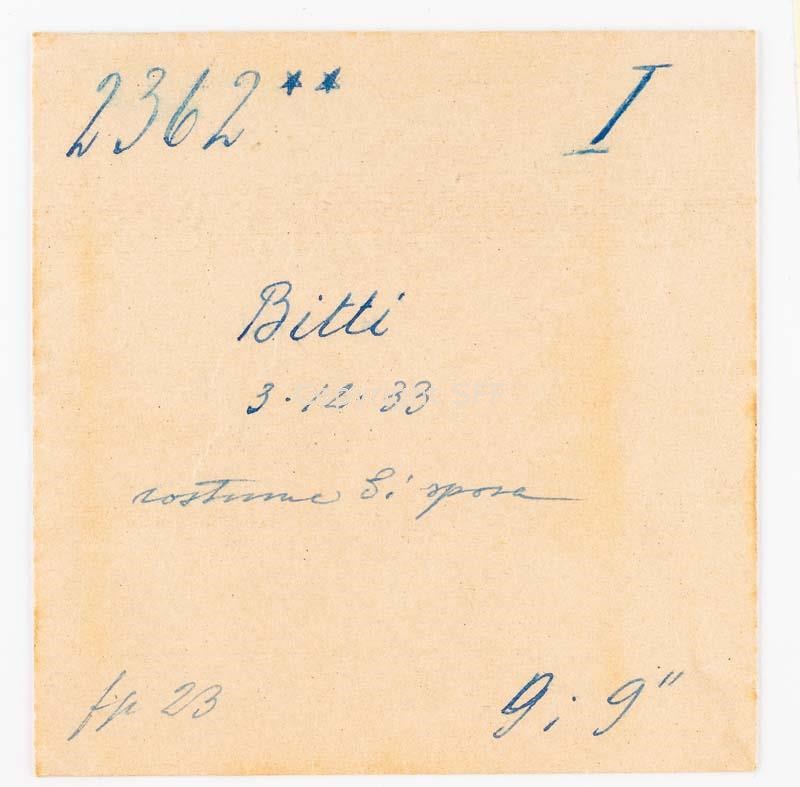 2362** I
Bitti
3·12·33
costume di sposa
fp 23
9; 9"